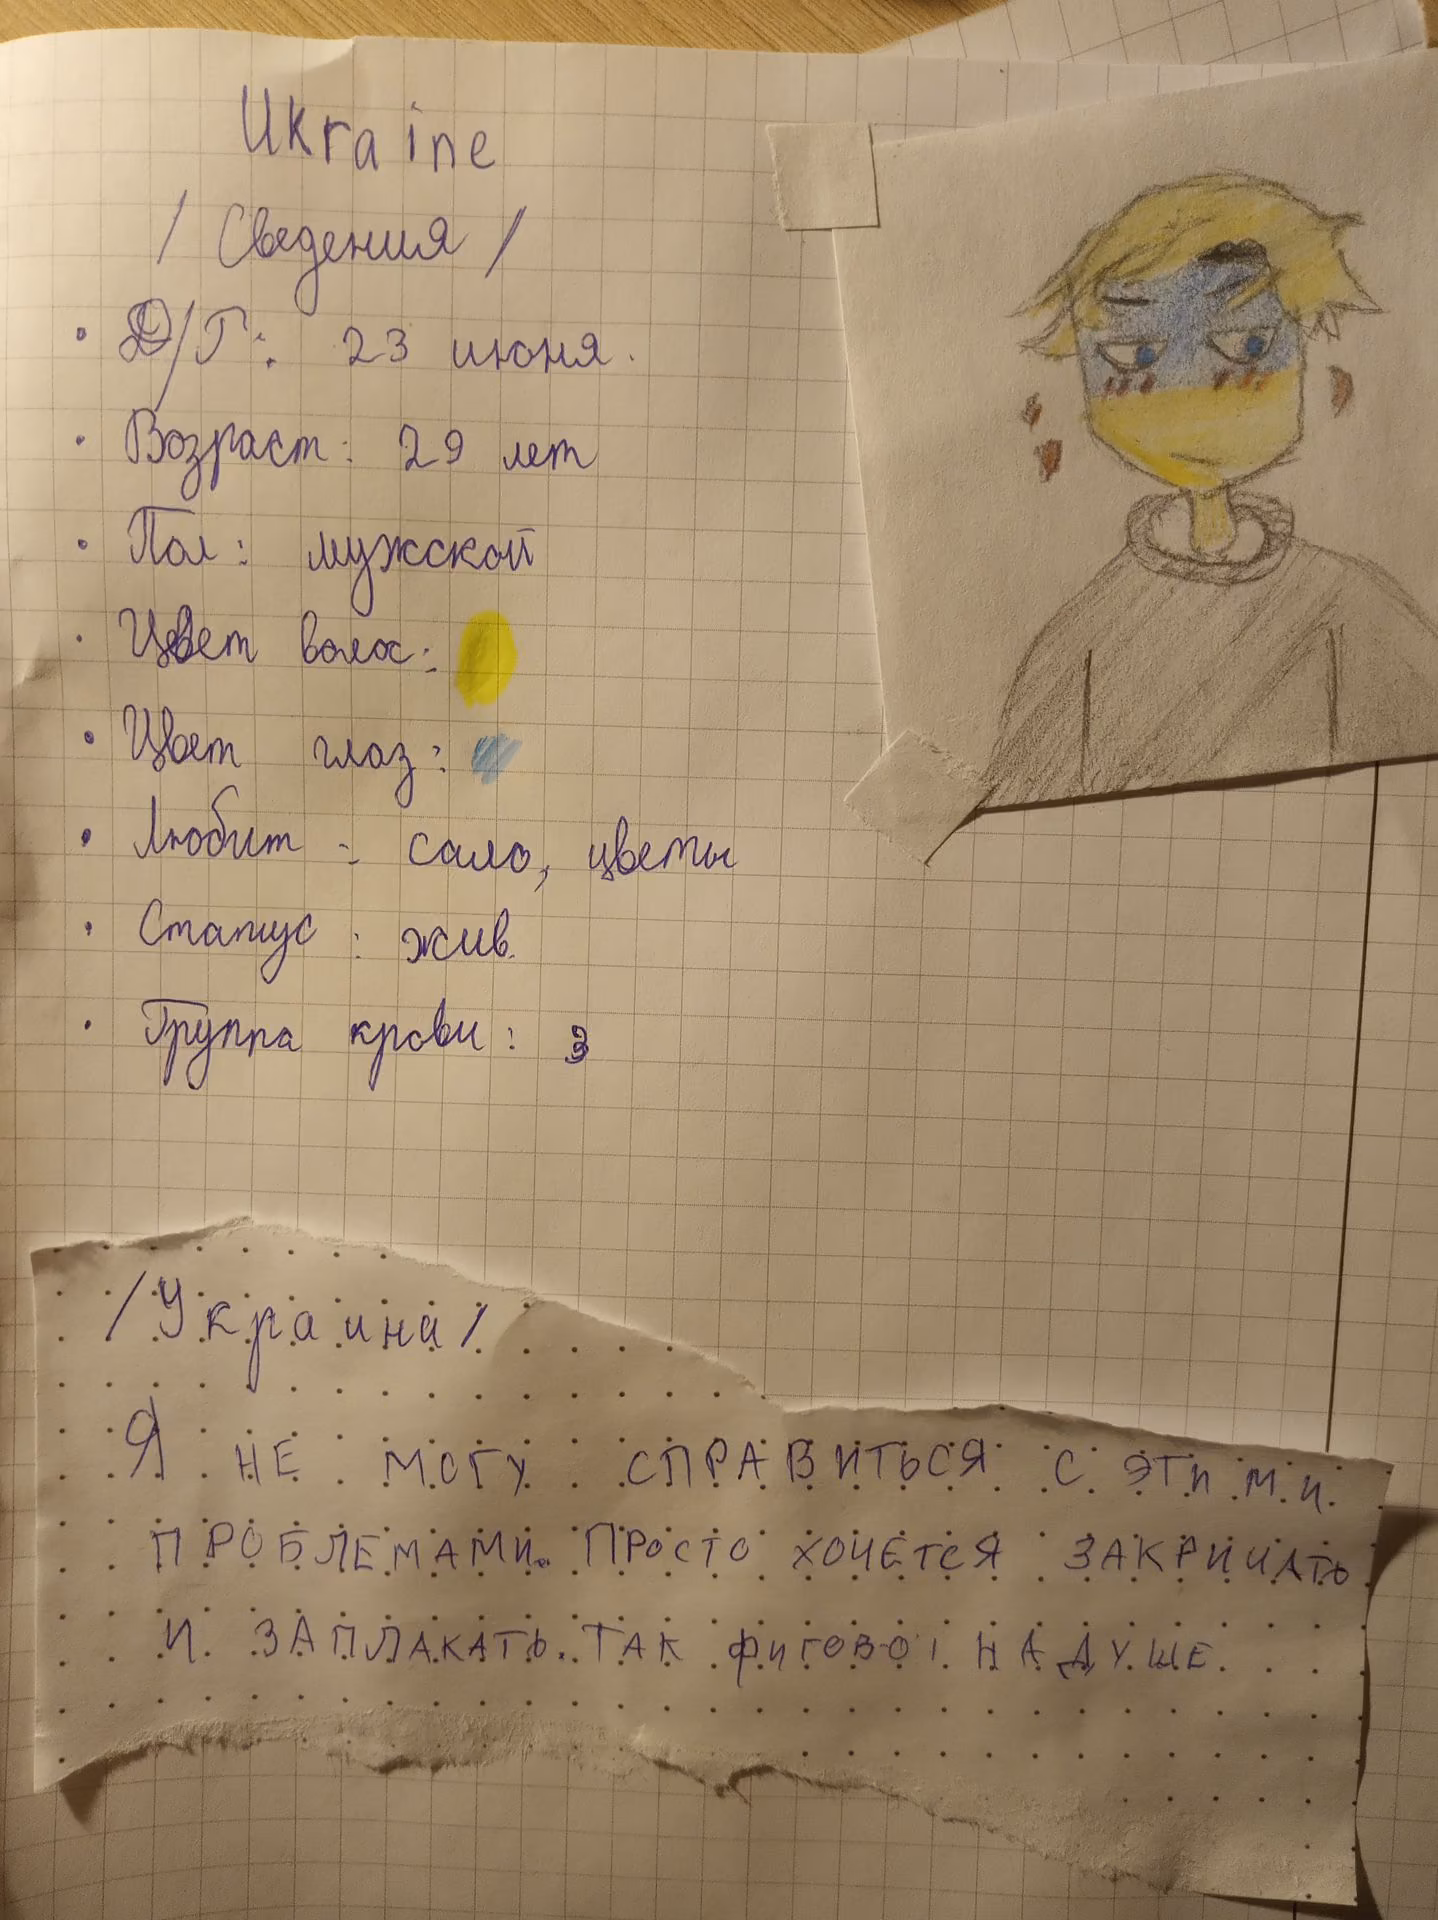 Ukraine
/ Сведения /
• Д/Г: 23 июня.
• Возраст: 29 лет
• Пол: мужской
• Цвет волос:
• Цвет глаз:
• Любит: сало, цветы
• Статус: жив.
• Группа крови: 3
/Украина/
Я НЕ МОГУ СПРАВИТЬСЯ С ЭТИМИ
ПРОБЛЕМАМИ. ПРОСТО ХОЧЕТСЯ ЗАКРИЧАТЬ
И ЗАПЛАКАТЬ. ТАК ФИГОВО НА ДУШЕ.